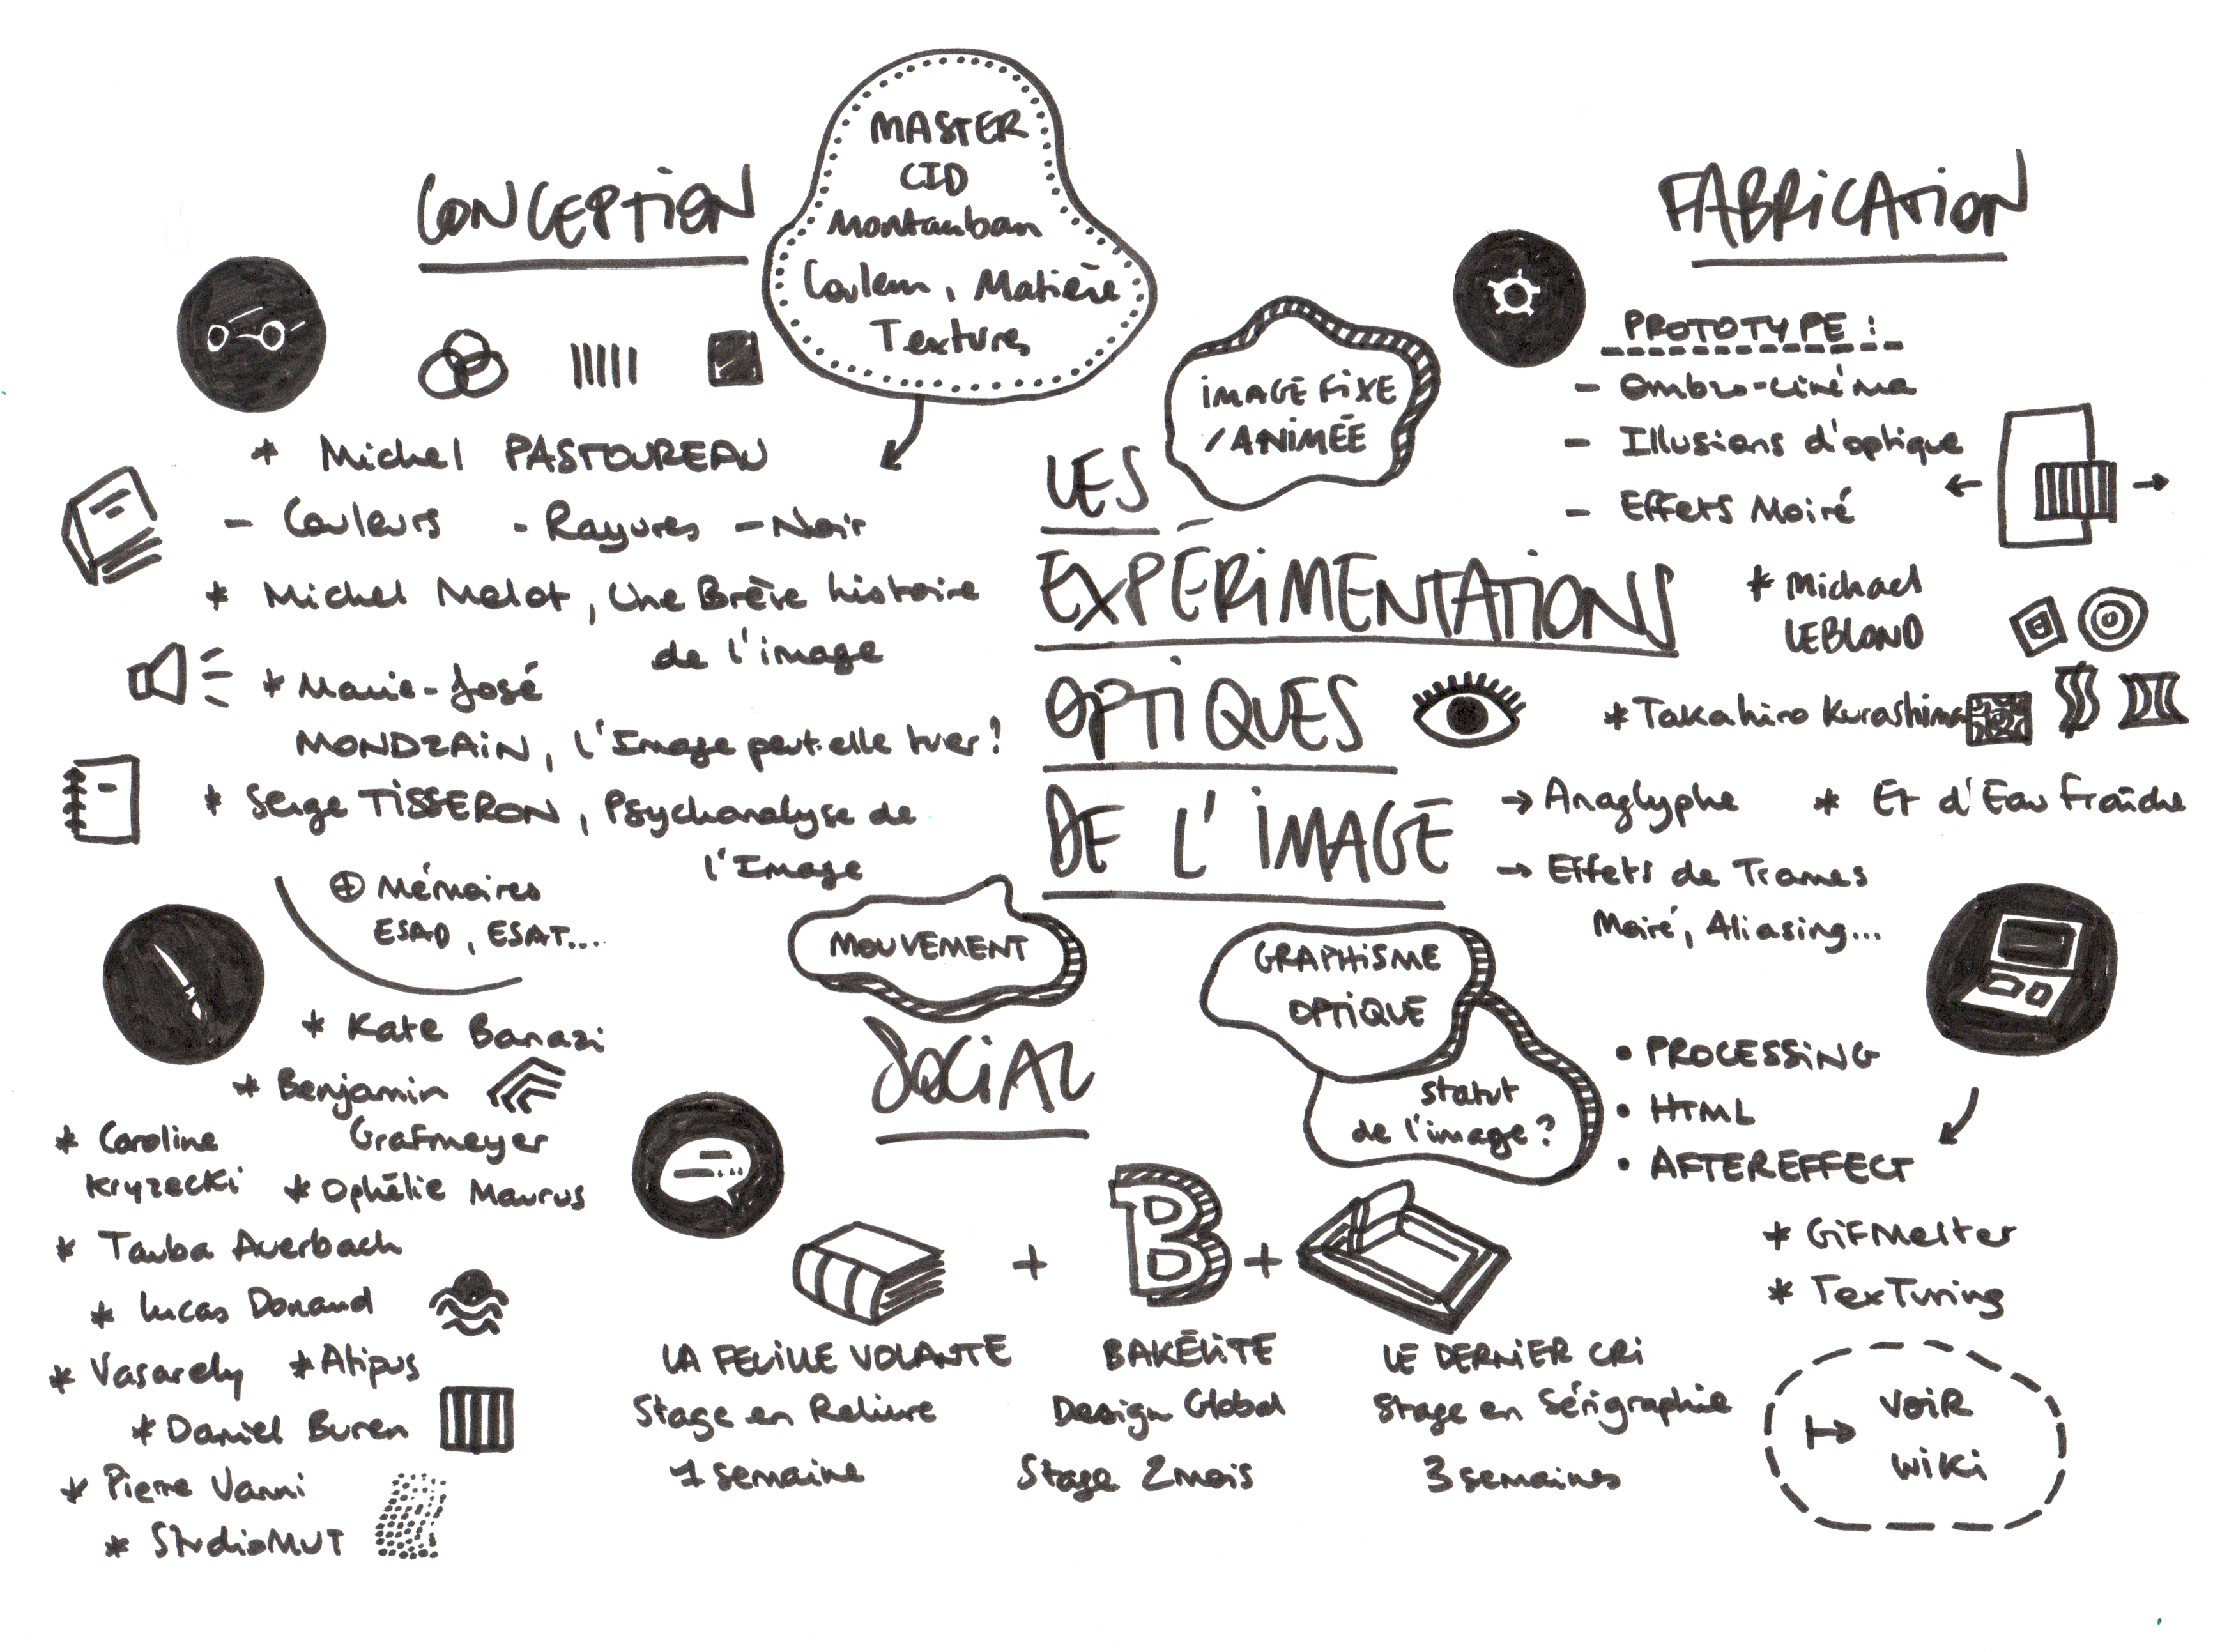 MASTER
CID
Montauban
Couleur, Matière
Texture
CONCEPTION
* Michel PASTOUREAU
- Couleurs - Rayures - Noir
* Michel Melot, Une Brève histoire
de l'image
* Marie-José
MONDZAIN, l'Image peut-elle tuer?
* Serge TISSERON, Psychanalyse de
l'Image
+ Mémoires
ESAD, ESAT...
* Kate Banazi
* Benjamin
Grafmeyer
* Caroline
Kryzecki
* Ophélie Maurus
* Tauba Auerbach
* Lucas Donaud
* Vasarely * Atipus
* Daniel Buren
* Pierre Vanni
* StudioMUT
IMAGE FIXE
/ANIMÉE
LES
EXPÉRIMENTATIONS
OPTIQUES
DE L'IMAGE
MOUVEMENT
GRAPHISME
OPTIQUE
statut
de l'image?
SOCIAL
+ B +
LA FEUILLE VOLANTE
Stage en Reliure
1 semaine
BAKÉLITE
Design Global
Stage 2 mois
LE DERNIER CRI
Stage en Sérigraphie
3 semaines
FABRICATION
PROTOTYPE :
- Ombro-cinéma
- Illusions d'optique
- Effets Moiré
* Michael
LEBLOND
* Takahiro Kurashima
→ Anaglyphe * Et d'Eau fraîche
→ Effets de Trames
Moiré, Aliasing...
• PROCESSING
• HTML
• AFTEREFFECT
* GifMelter
* TexTuring
↦ VOIR
WIKI